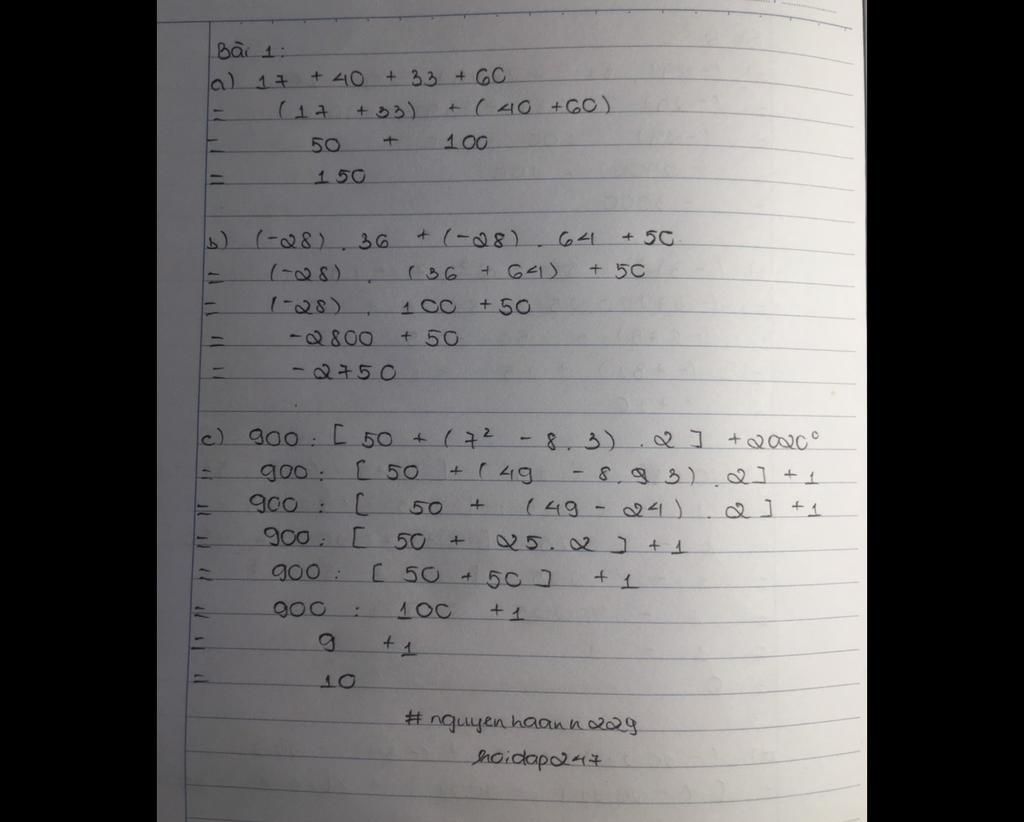 Bài 1:
a) 17 + 40 + 33 + 60
= (17 + 33) + (40 + 60)
= 50 + 100
= 150
b) (-28) . 36 + (-28) . 64 + 50
= (-28) . (36 + 64) + 50
= (-28) . 100 + 50
= -2800 + 50
= -2750
c) 900 : [ 50 + (7² - 8.3) . 2 ] + 2020⁰
= 900 : [ 50 + (49 - 8.3) . 2 ] + 1
= 900 : [ 50 + (49 - 24) . 2 ] + 1
= 900 : [ 50 + 25 . 2 ] + 1
= 900 : [ 50 + 50 ] + 1
= 900 : 100 + 1
= 9 + 1
= 10
#nguyenhaann229
hoidap247